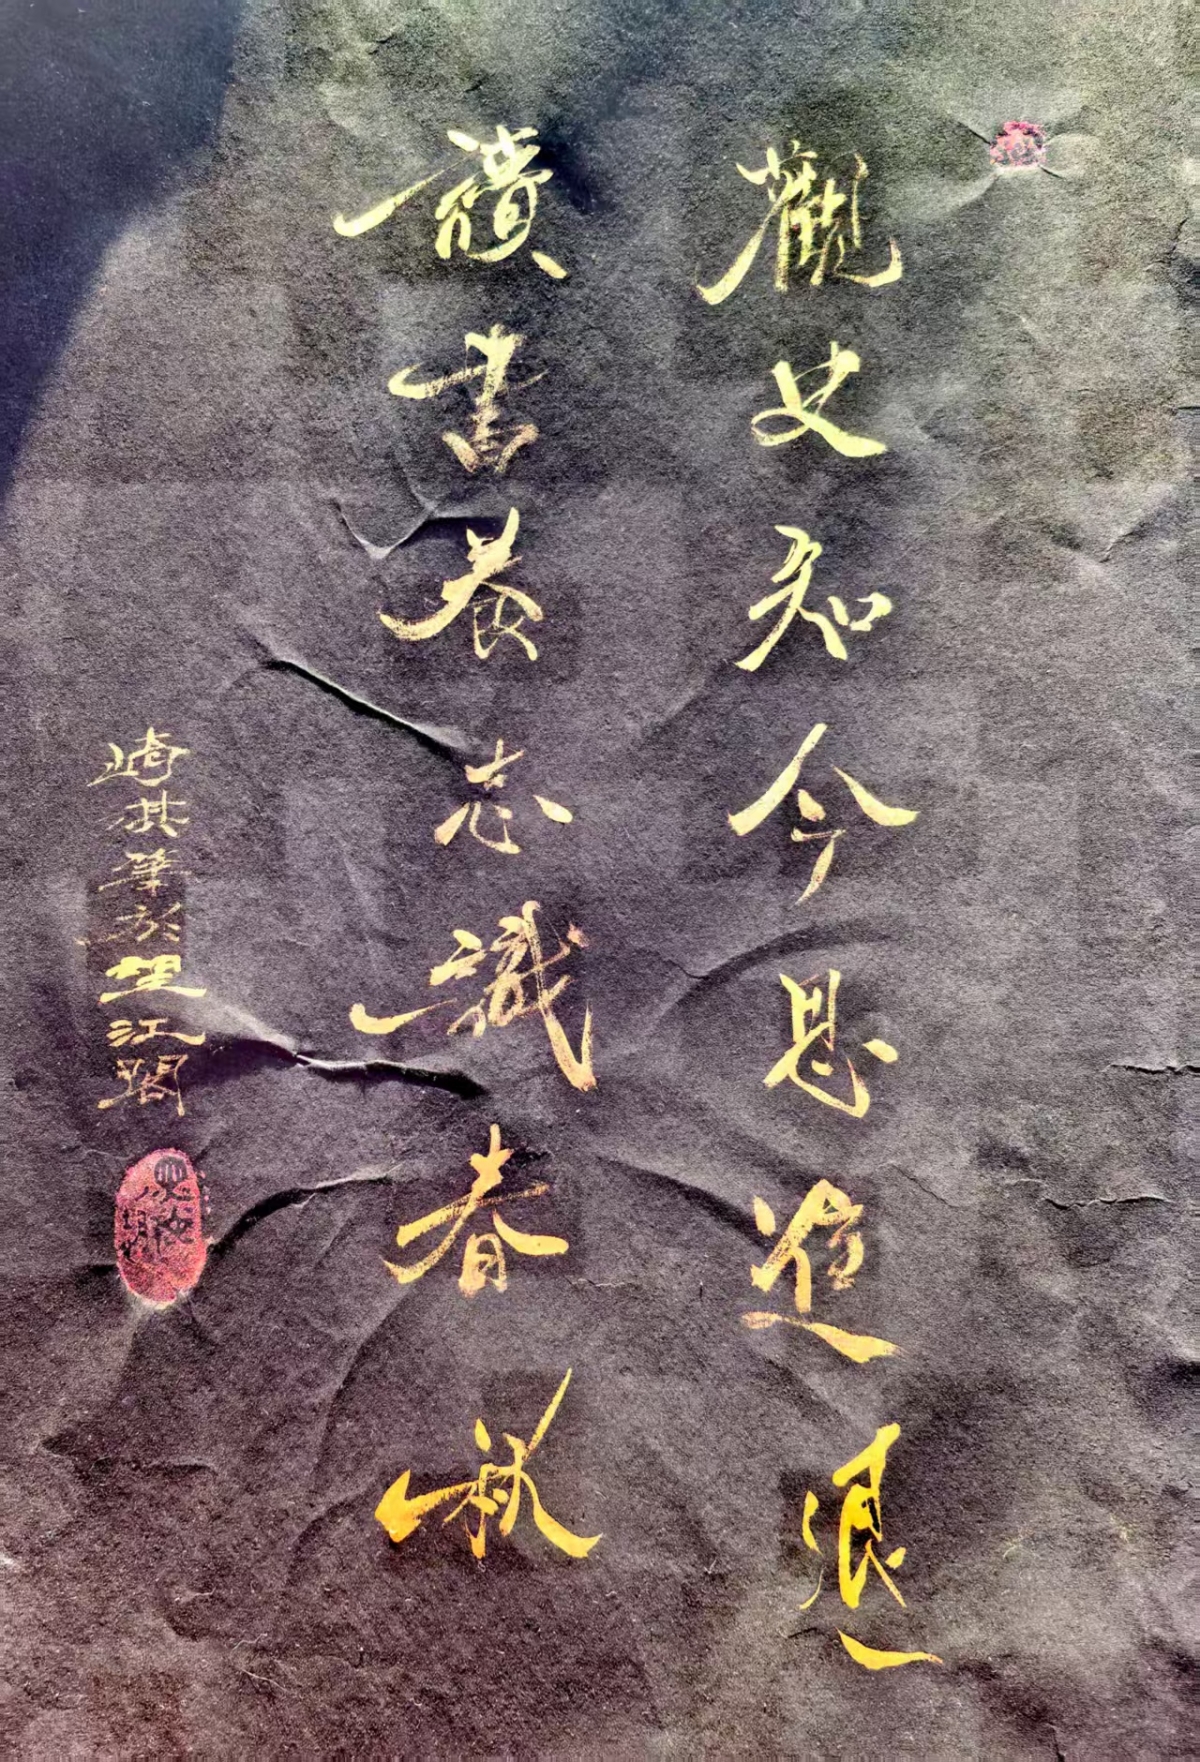 觀史知今思進退
讀書養志識春秋
崎其筆於望江閣